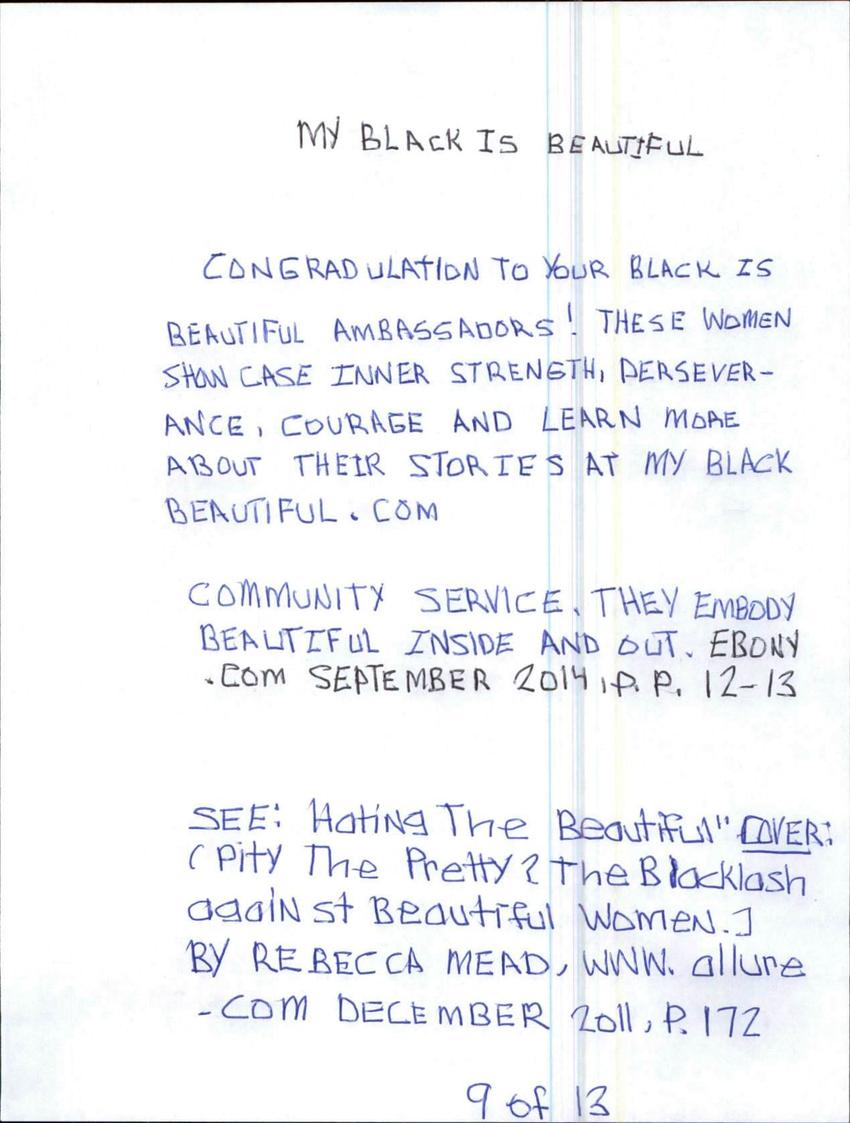 MY BLACK IS BEAUTIFUL
CONGRADULATION TO YOUR BLACK IS
BEAUTIFUL AMBASSADORS! THESE WOMEN
SHOW CASE INNER STRENGTH, PERSEVER-
ANCE, COURAGE AND LEARN MORE
ABOUT THEIR STORIES AT MY BLACK
BEAUTIFUL.COM
COMMUNITY SERVICE, THEY EMBODY
BEAUTIFUL INSIDE AND OUT. EBONY
.COM SEPTEMBER 2014, P.P. 12-13
SEE: Hating The Beautiful" COVER:
(Pity The Pretty? The Blacklash
against Beautiful Women.]
BY REBECCA MEAD, WWW. allure
-COM DECEMBER 2011, P. 172
9 of 13